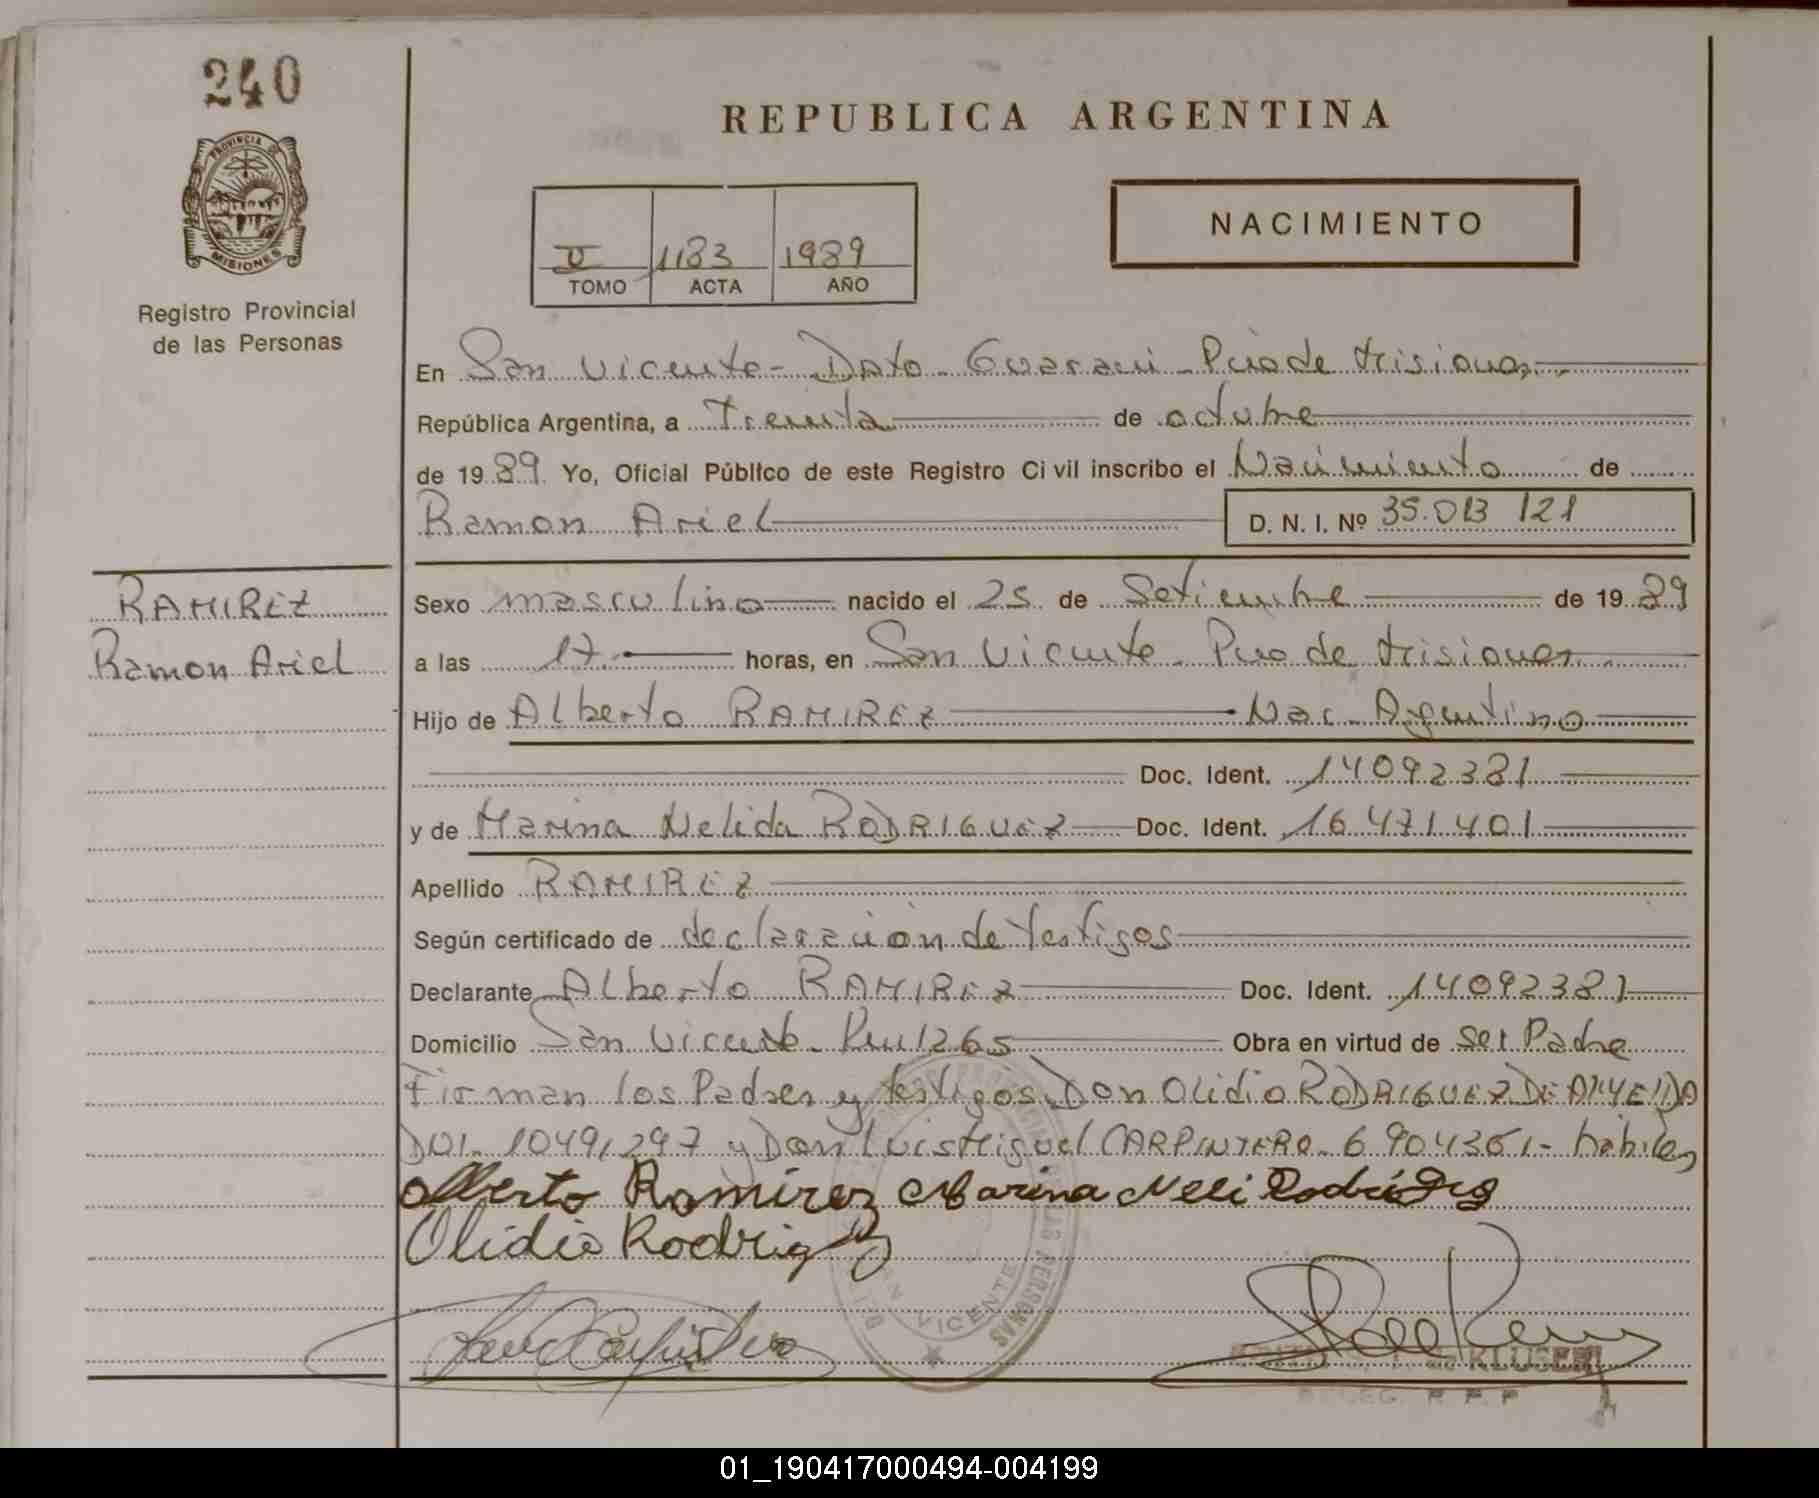 240
REPUBLICA ARGENTINA
PROVINCIA DE
MISIONES
Registro Provincial
de las Personas
NACIMIENTO
II 1183 1989
TOMO ACTA AÑO
En San Vicente - Dpto. Guarani - Pcia de Misiones
República Argentina, a Treinta de octubre
de 1989. Yo, Oficial Público de este Registro Civil inscribo el Nacimiento de
Ramon Ariel D. N. I. Nº 35.013 121
RAMIREZ
Ramon Ariel
Sexo masculino nacido el 25 de Setiembre de 1989
a las 17 horas, en San Vicente Pcia de Misiones
Hijo de Alberto RAMIREZ Nac. Argentino
Doc. Ident. 14092381
y de Marina Nelida RODRIGUEZ Doc. Ident. 16.471.401
Apellido RAMIREZ
Según certificado de declaración de testigos
Declarante Alberto RAMIREZ Doc. Ident. 14092381
Domicilio San Vicente - Km 1265 Obra en virtud de ser Padre
Firman los Padres y testigos Don Olidio RODRIGUEZ DE
1049,297 y Don Luis Miguel CARPINTERO - 6 904361 - habiles
Alberto Ramirez Marina Neli
Olidio Rodriguez
SAN VICENTE
DE KLUSENER
DELEG. R. P. P
01_190417000494-004199